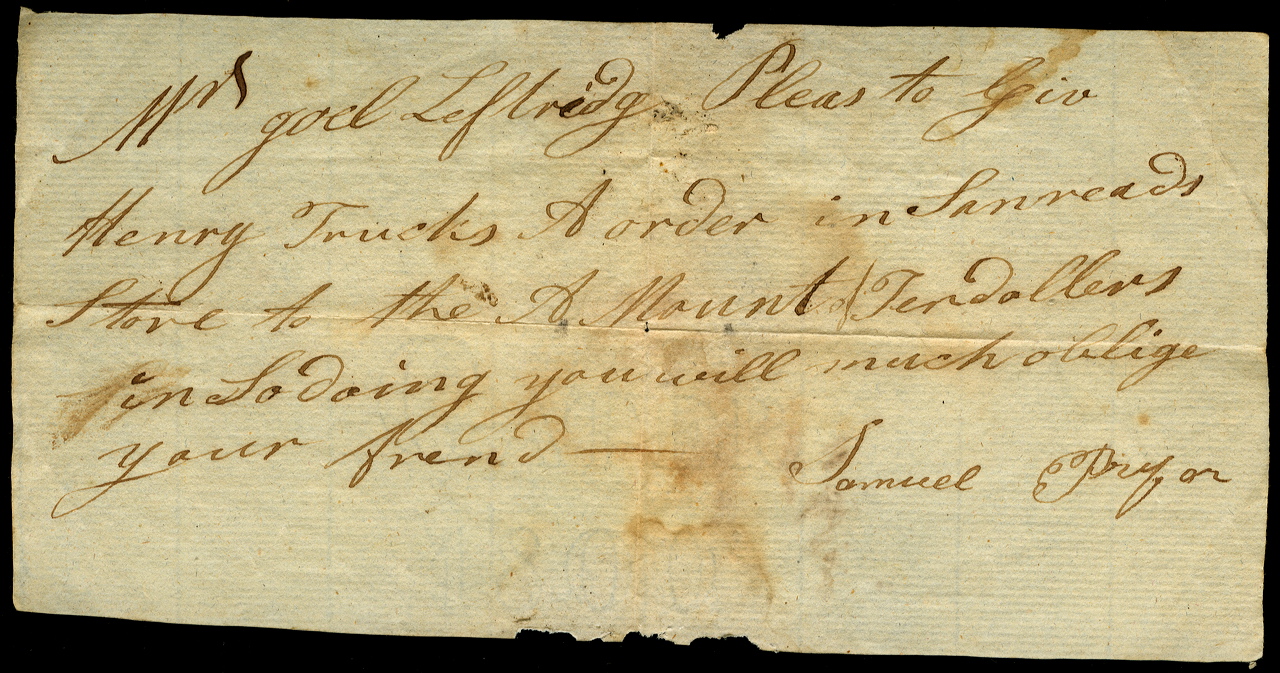 Mr goel Leftridg Pleas to Giv
Henry Trucks A order in Sanreads
Store to the A Mount of Terdollers
in So doing you will much oblige
your frend — Samuel Pryor